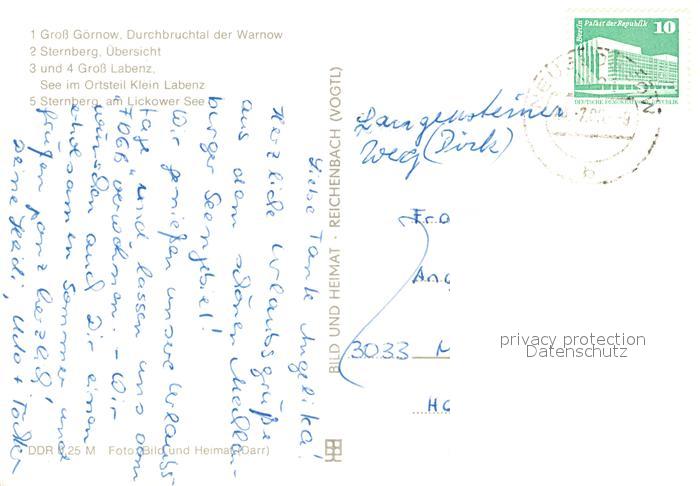 1 Groß Görnow, Durchbruchtal der Warnow
2 Sternberg, Übersicht
3 und 4 Groß Labenz,
See im Ortsteil Klein Labenz
5 Sternberg, am Lickower See
Liebe Tante Angelika!
Herzliche Urlaubsgrüße
aus dem schönen Mecklen-
burger Seengebiet!
Wir genießen unsere Urlaubs
tage und lassen uns vom
verwöhnen. - Wir
wünschen auch Dir einen
erholsamen Sommer und
grüßen ganz herzlich,
Deine Heidi, Udo +
DDR 0,25 M Foto: Bild und Heimat (Darr)
BILD UND HEIMAT · REICHENBACH (VOGTL)
Berlin Palast der Republik
10
DEUTSCHE DEMOKRATISCHE REPUBLIK
b
Langensteiner
Weg (Dirk)
Fra
Ang
3033 M
Ha
privacy protection
Datenschutz